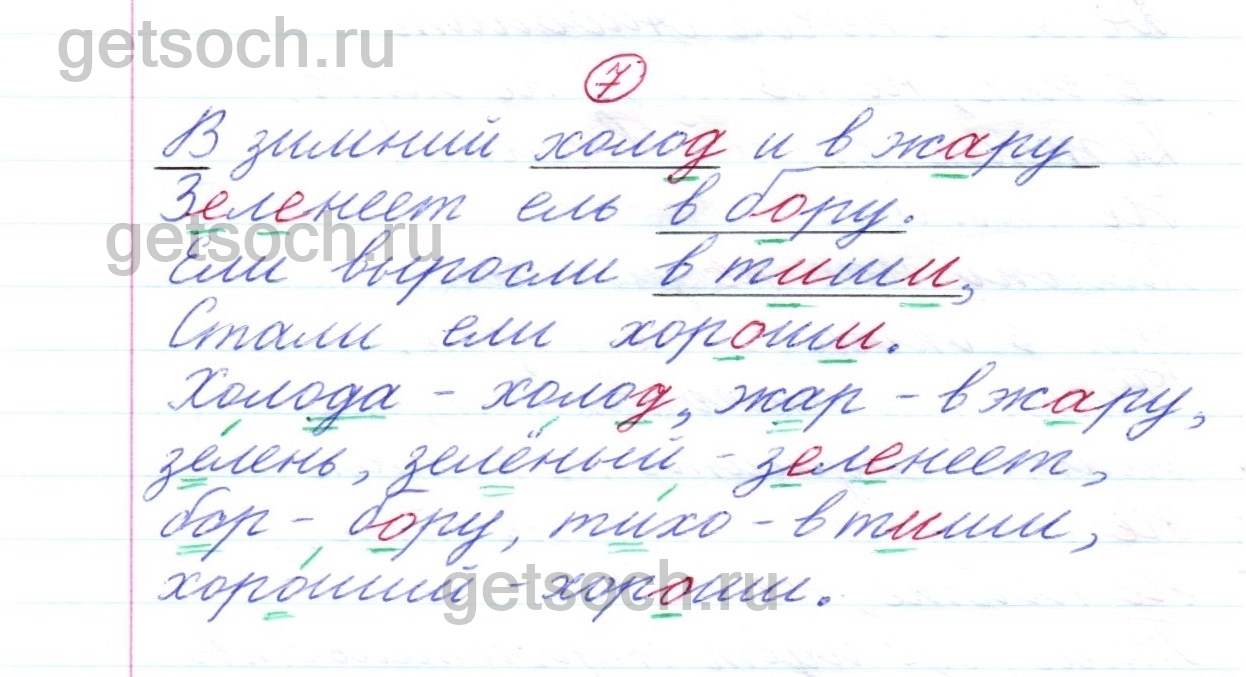 getsoch.ru
7
В зимний холод и в жару
Зеленеет ель в бору.
getsoch.ru
Ели выросли в тиши,
Стали ели хороши.
Холода - холод, жар - в жару,
зелень, зелёный - зеленеет,
бор - бору, тихо - в тиши,
хороший - хороши.
getsoch.ru